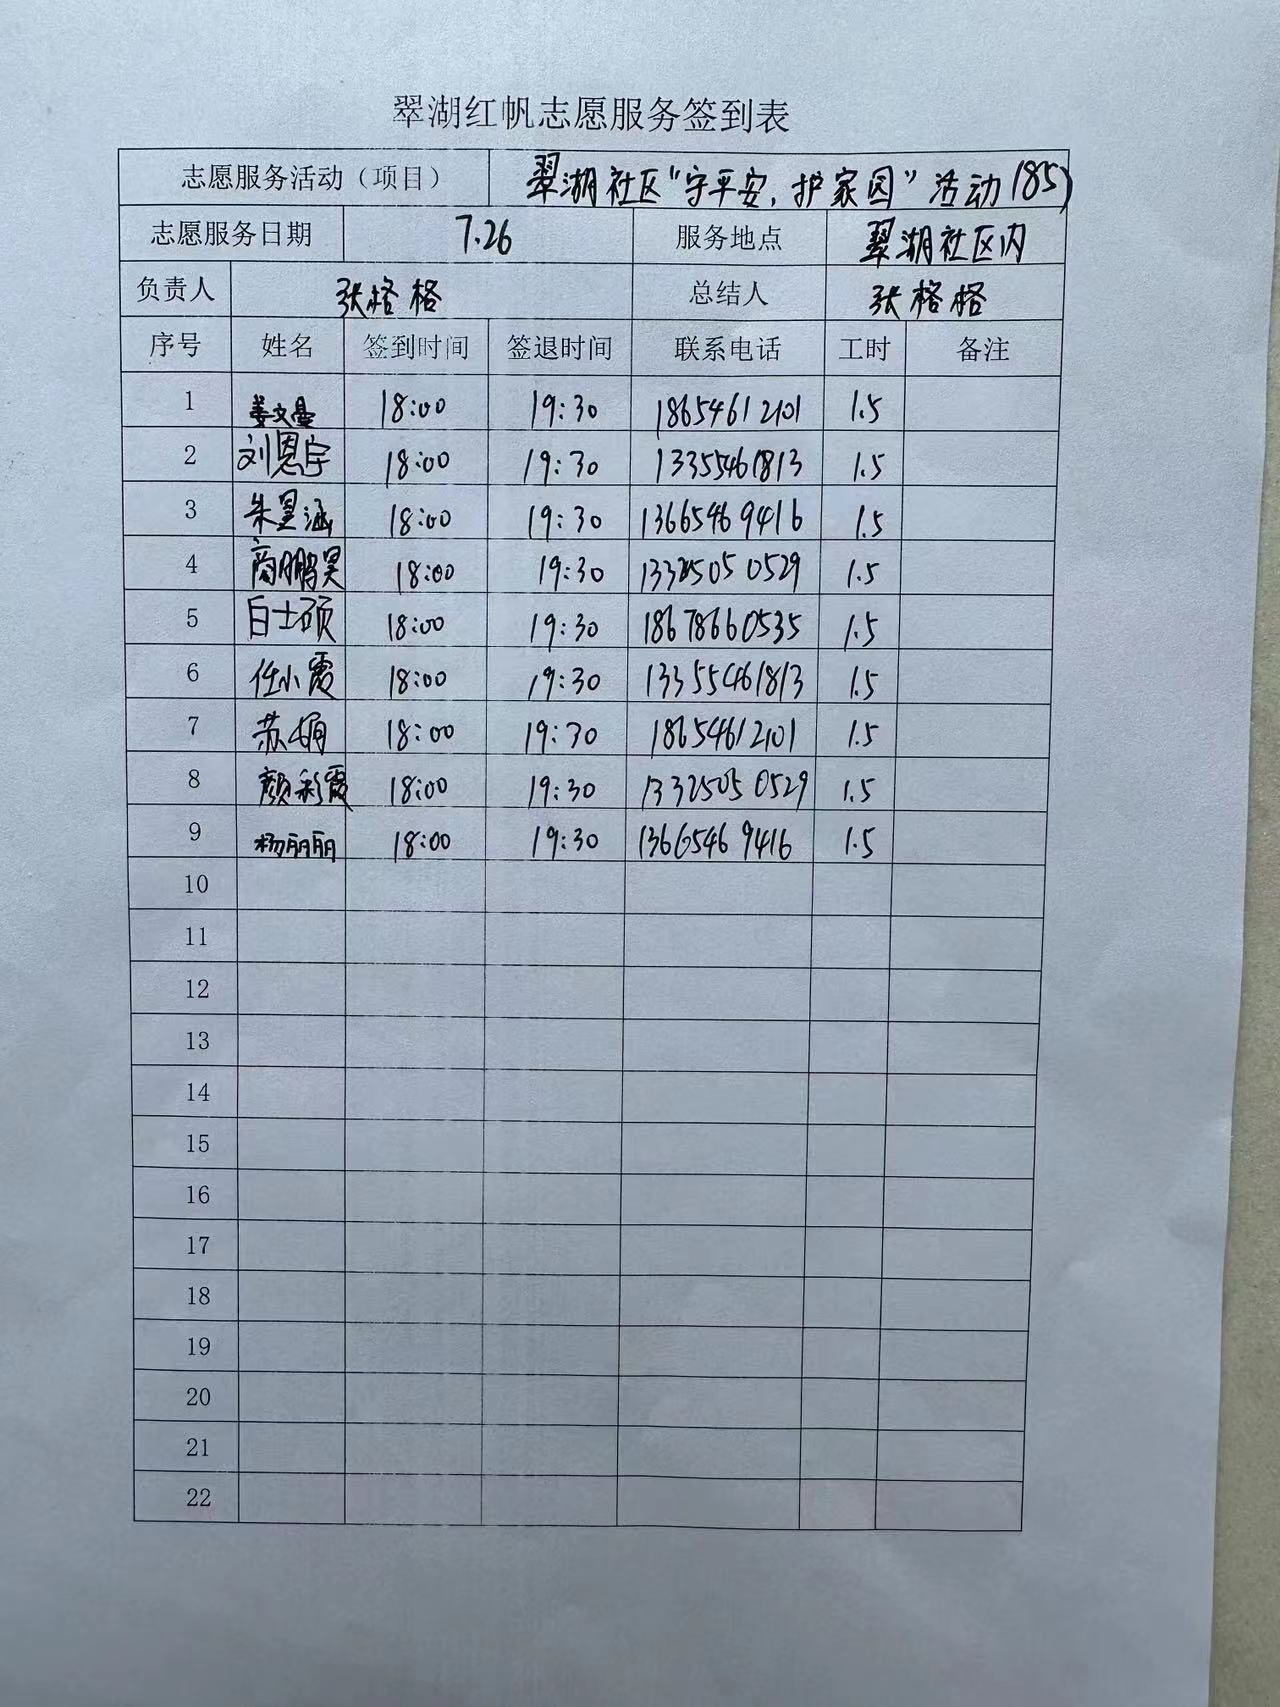 翠湖红帆志愿服务签到表
志愿服务活动（项目） 翠湖社区“守平安，护家园”活动(85)
志愿服务日期 7.26 服务地点 翠湖社区内
负责人 张格格 总结人 张格格
序号 姓名 签到时间 签退时间 联系电话 工时 备注
1 姜文曼 18:00 19:30 18654612101 1.5
2 刘恩宇 18:00 19:30 13355461813 1.5
3 朱昱涵 18:00 19:30 13665469416 1.5
4 商鹏昊 18:00 19:30 13325050529 1.5
5 白士硕 18:00 19:30 18678660535 1.5
6 任小霞 18:00 19:30 13355461813 1.5
7 苏娟 18:00 19:30 18654612101 1.5
8 颜彩霞 18:00 19:30 13325050529 1.5
9 杨丽丽 18:00 19:30 13665469416 1.5
10
11
12
13
14
15
16
17
18
19
20
21
22